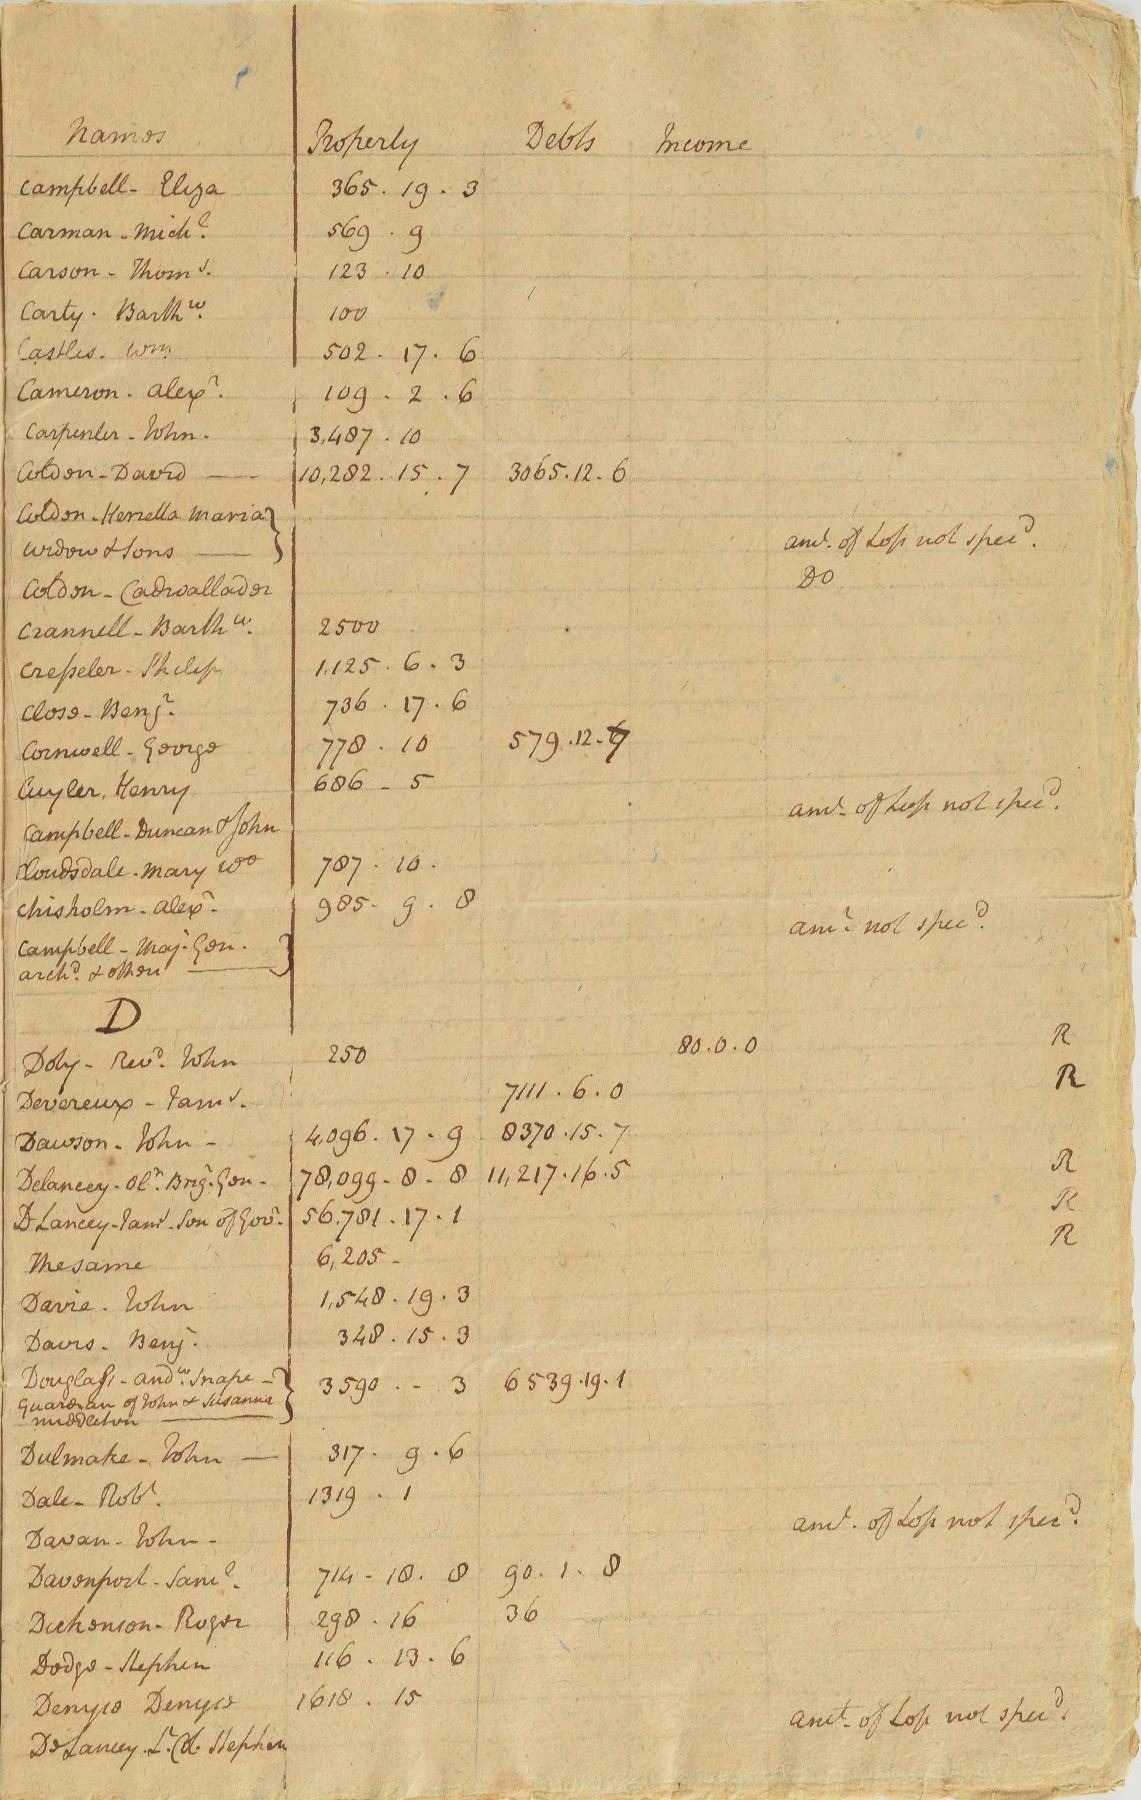 Names Property Debts Income
Campbell - Eliza 365 . 19 . 3
Carman - Mich.l 569 . 9
Carson - Thom.s 123 . 10
Carty . Barth.w 100
Castles . Wm 502 . 17 . 6
Cameron . Alex.r 109 . 2 . 6
Carpenter - John . 3,487 . 10
Colden - David — 10,282 . 15 . 7 3065 . 12 . 6
Colden - Henrella Maria
Widow & Sons — } am.t of Loss not spec.d
Colden - Cadwallader Do
Crannell - Barth.w 2500
Cressler - Philip 1,125 . 6 . 3
Close - Benj.n 736 . 17 . 6
Cornwell - George 778 . 10 579 . 12 .
Cuyler, Henry 686 - 5
Campbell - Duncan & John am.t of Loss not spec.d
Cloudsdale - Mary Wo 787 . 10 .
Chisholm - Alex.r 985 - 9 . 8
Campbell - Maj.r Gen . } am.t not spec.d
Arch.d & others —
D
Doty - Rev.d John 250 80 . 0 . 0 R
Devereux - Jam.s 7111 . 6 . 0 R
Dawson - John - 4,096 . 17 . 9 8370 . 15 . 7
Delancey - Ol.r Brig.r Gen - 78,099 - 8 - 8 11,217 . 16 . 5 R
DLancey - Jam.s Son of Gov.r 56,781 . 17 . 1 R
The same 6,205 - R
Davie . John 1,548 . 19 . 3
Davis - Benj. 348 . 15 . 3
Douglass - And.w Snape - } 3590 . - 3 6539 . 19 . 1
Guardian of John & Susanna
Middleton —
Dulmake - John — 317 . 9 . 6
Dale - Rob.t 1319 . 1
Davan - John - am.t of Loss not spec.d
Davenport - Sam.l 714 - 18 . 8 90 . 1 . 8
Dickenson - Roger 298 . 16 36
Dodge - Stephen 116 . 13 . 6
Denyce Denyce 1618 . 15
De Lancey . L.t Col. Stephen am.t of Loss not spec.d